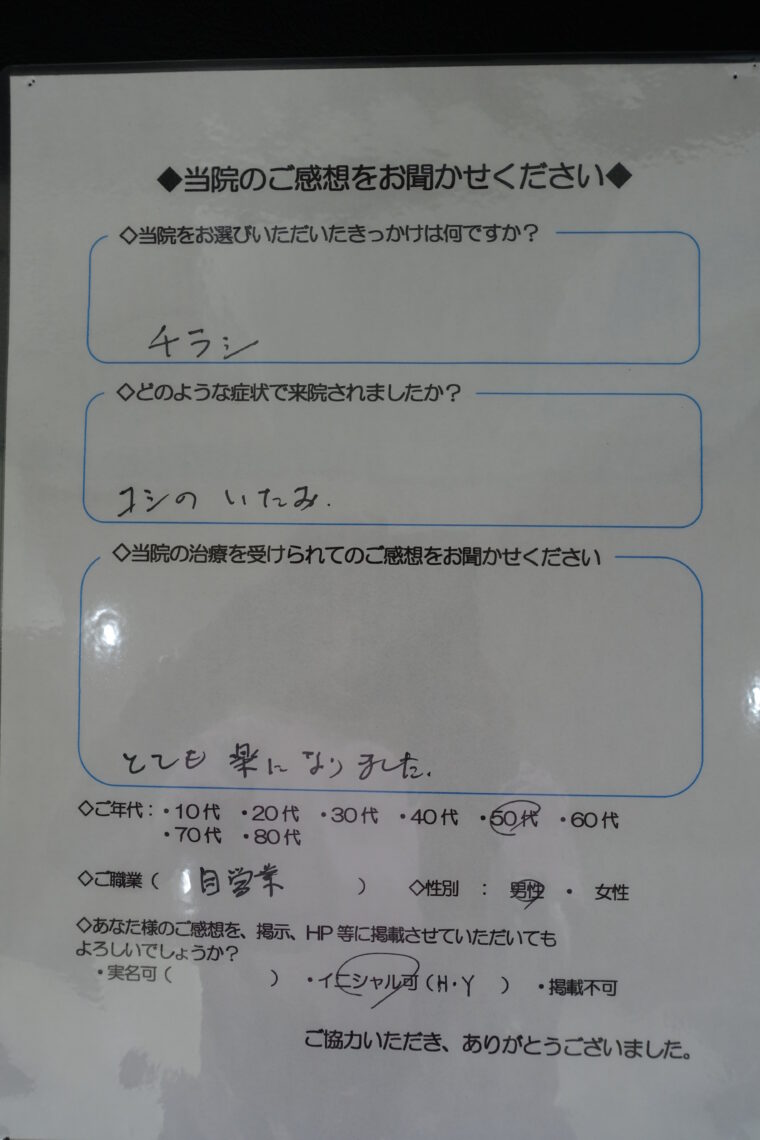 ◆当院のご感想をお聞かせください◆
◇当院をお選びいただいたきっかけは何ですか？
チラシ
◇どのような症状で来院されましたか？
コシの いたみ.
◇当院の治療を受けられてのご感想をお聞かせください
とても 楽に なりました.
◇ご年代：・10代 ・20代 ・30代 ・40代 ・50代 ・60代
・70代 ・80代
◇ご職業（ 自営業 ） ◇性別 ： 男性 ・ 女性
◇あなた様のご感想を、掲示、HP等に掲載させていただいても
よろしいでしょうか？
・実名可（ ） ・イニシャル可（H・Y ） ・掲載不可
ご協力いただき、ありがとうございました。